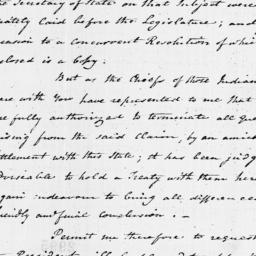 the Secretary of State on that Subject were
mediately laid before the Legislature; and
casion to a concurrent Resolution of whi
closed is a Copy.
But as the Chiefs of those Indian
are with You have represented to me that
re fully authorized to terminate all Que
rising from the said Claim, by an amica
ettlement with this State; it has been judg
dviseable to hold a Treaty with them here
again endeavour to bring all differences
friendly and final conclusion. —
Permit me therefore to request
President